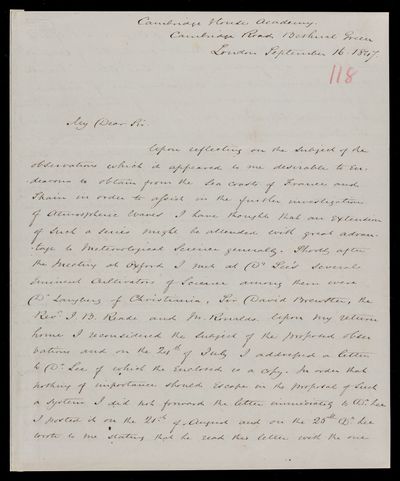 Cambridge House Academy.
Cambridge Road Bethnal Green
London September 16. 1847.
118
My Dear Sir.
Upon reflecting on the subject of the
observations which it appeared to me desirable to En-
-deavour to obtain from the Sea Coasts of France and
Spain in order to assist in the further investigation
of Atmospheric Waves I have thought that an Extension
of such a series might be attended with great advan-
-tage to Meteorological Science generally. Shortly after
the Meeting at Oxford I met at Dr Lee's several
Eminent Cultivators of Science among them were
Dr Langberg of Christiania, Sir David Brewster, the
Revd J. B. Reade and Mr Ronalds. Upon my return
home I reconsidered the subject of the proposed obser
vations and on the 24th of July I addressed a letter
to Dr Lee of which the Enclosed is a copy. In order that
nothing of importance should Escape in the proposal of such
a system I did not forward the letter immediately to Dr Lee
I posted it on the of August and on the 25th Dr Lee
wrote to me stating that he read the letter with the one